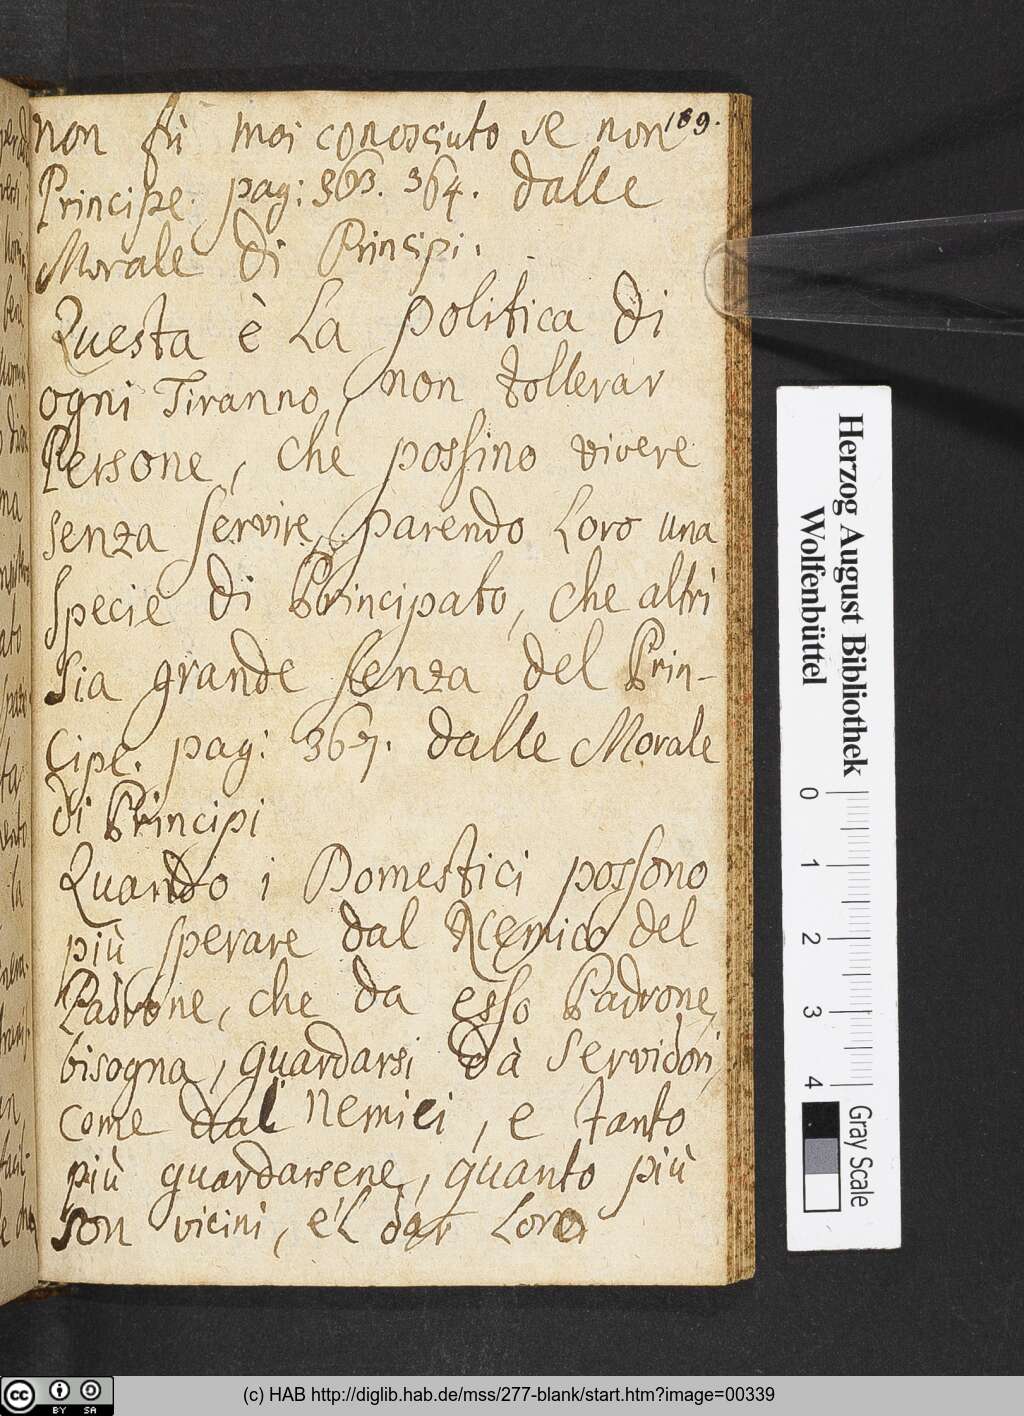 189.
non fù mai conosciuto se non
Principe. pag: 363. 364. dalle
Morale di Principi.
Questa è La politica di
ogni Tiranno, non tollerar
Persone, che possino vivere
senza servire, parendo Loro una
specie di Principato, che altri
sia grande senza del Prin-
cipe. pag: 367. dalle Morale
di Principi
Quando i Domestici possono
più sperare dal Nemico del
Padrone, che da esso Padrone,
bisogna, guardarsi dà Servidori,
come dal Nemici, e tanto
più guardarsene, quanto più
son vicini, e'l dar Loro
Herzog August Bibliothek
Wolfenbüttel
0 1 2 3 4
Gray Scale
cc BY SA
(c) HAB http://diglib.hab.de/mss/277-blank/start.htm?image=00339